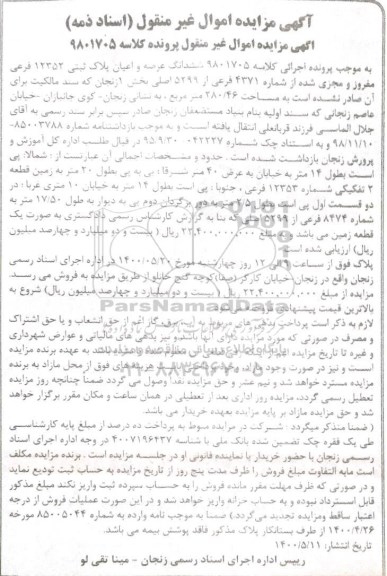 آگهی مزایده اموال غیر منقول (اسناد ذمه)
آگهی مزایده اموال غیر منقول پرونده کلاسه ۹۸۰۱۷۰۵
به موجب پرونده اجرائی کلاسه ۹۸۰۱۷۰۵ ششدانگ عرصه و اعیان پلاک ثبتی ۱۲۳۵۲ فرعی
مفروز و مجزی شده از شماره ۴۳۷۱ فرعی از ۵۲۹۹ اصلی بخش ۱ زنجان که سند مالکیت برای
آن صادر نشده است به مساحت ۲۸۰/۴۶ متر مربع ، به نشانی زنجان- کوی جانبازان -خیابان
عاصم زنجانی که سند اولیه بنام بنیاد مستضعفان زنجان صادر سپس برابر سند رسمی به آقای
جلال الماسی فرزند قربانعلی انتقال یافته است و به موجب بازداشتنامه شماره ۸۵۰۰۳۷۸۸-
۹۸/۱۱/۱۰ و به استناد چک شماره ۰۴۲۲۳۷ - ۹۵/۹/۳۰ در قبال طلب اداره کل آموزش و
پرورش زنجان بازداشت شده است . حدود و مشخصات اجمالی آن عبارتست از : شمالا: پی
است بطول ۱۴ متر به خیابان به عرض ۴۰ متر شرقا : پی به پی بطول ۲۰ متر به زمین قطعه
۲ تفکیکی شماره ۱۲۳۵۳ فرعی ، جنوبا : پی است بطول ۱۴ متر به خیابان ۱۰ متری غربا : در
دو قسمت اول پی است بطول ۲/۵۰ متر دوم پی به دیوار به طول ۱۷/۵۰ متر به
شماره ۸۴۷۴ فرعی از ۵۲۹۹ اصلی که بنا به گزارش کارشناس رسمی دادگستری به صورت یک
قطعه زمین می باشد و به مبلغ ۲۲.۴۰۰.۰۰۰.۰۰۰ ریال ( بیست و دو میلیارد و چهارصد میلیون
ریال) ارزیابی شده است.
پلاک فوق از ساعت ۹ الی ۱۲ روز چهارشنبه مورخ ۱۴۰۰/۰۵/۲۰ در اداره اجرای اسناد رسمی
زنجان واقع در زنجان خیابان کارگر به مزایده به فروش می رسد.
مزایده از مبلغ ۲۲.۴۰۰.۰۰۰.۰۰۰ ریال ( بیست و دو میلیارد و چهارصد میلیون ریال) شروع به
بالاترین قیمت پیشنهادی
لازم به ذکر است پرداخت بدهی های مربوط به آب، برق، گاز اعم از حق انشعاب و یا حق اشتراک
و مصرف در صورتی که مورد مزایده دارای آنها باشد و نیز بدهی های مالیاتی و عوارض شهرداری
و غیره تا تاریخ مزایده به عهده برنده مزایده
است و نیز در صورت وجود مازاد وجوه پرداختی بابت هزینه های فوق از محل مازاد به برنده
مزایده مسترد خواهد شد و نیم عشر و حق مزایده نقدا وصول می گردد ضمنا چنانچه روز مزایده
تعطیل رسمی گردد، مزایده روز اداری بعد از تعطیلی در همان ساعت و مکان مقرر برگزار خواهد
شد و حق مزایده مازاد بر پایه مزایده بعهده خریدار می باشد.
( ضمنا متذکر میگردد : شرکت در مزایده منوط به پرداخت ده درصد از مبلغ پایه کارشناسی
طی یک فقره چک تضمین شده بانک ملی با شناسه ۴۰۰۷۱۹۶۴۳۷ در وجه اداره اجرای اسناد
رسمی زنجان با حضور خریدار یا نماینده قانونی او در جلسه مزایده است . برنده مزایده مکلف
است مابه التفاوت مبلغ فروش را ظرف مدت پنج روز از تاریخ مزایده به حساب ثبت تودیع نماید
و در صورتی که ظرف مهلت مقرر مانده فروش را به حساب سپرده ثبت واریز نکند مبلغ مذکور
قابل استرداد نبوده و به حساب خزانه واریز خواهد شد و در این صورت عملیات فروش از درجه
اعتبار ساقط ومزایده تجدید می‌گردد.) ضمنا به موجب نامه وارده به شماره ۸۵۰۰۵۰۴۴ مورخه
۱۴۰۰/۴/۲۶ از طرف بستانکار پلاک مذکور فاقد پوشش بیمه می باشد.
تاریخ انتشار: ۱۴۰۰/۵/۱۱
رییس اداره اجرای اسناد رسمی زنجان - مینا تقی لو